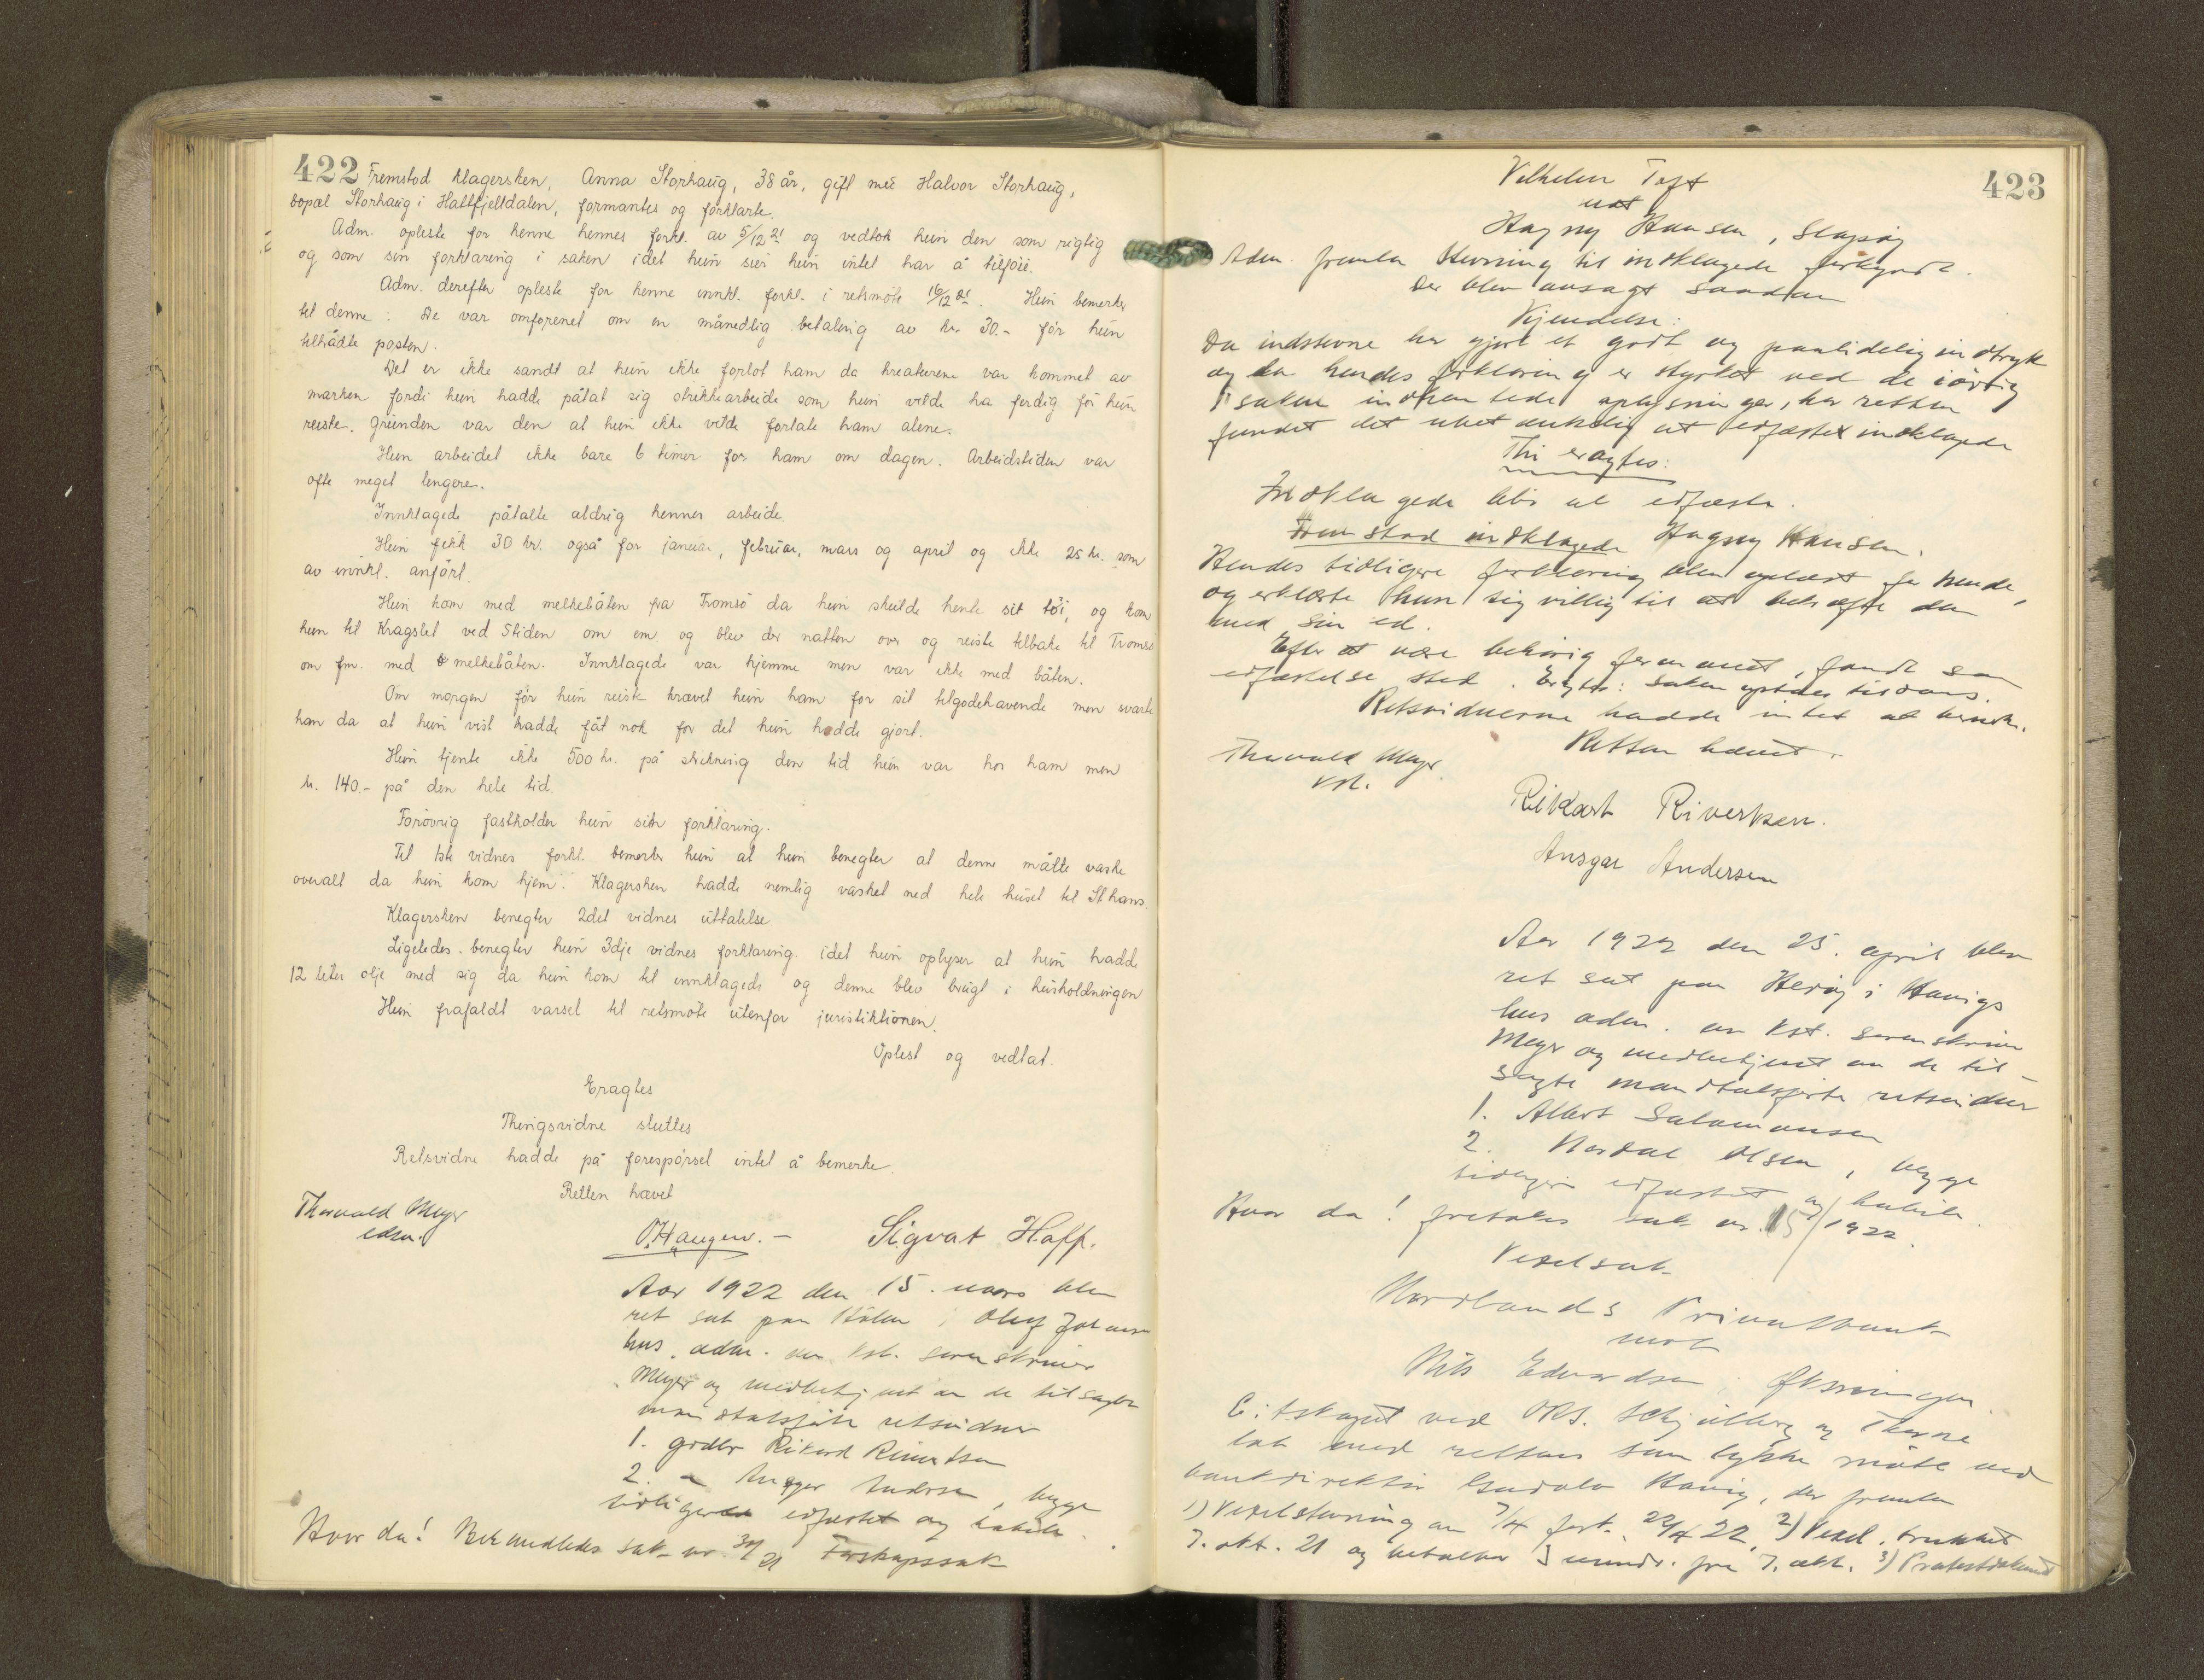 422
Fremstod klagersken, Anna Storhaug, 38 år, gift med Halvor Storhaug,
bopæl Storhaug i Hattfjelldalen, formantes og forklarte.
Adm. opleste for henne hennes forkl. av 5/12 21 og vedtok hun den som rigtig
og som sin forklaring i saken idet hun sier hun intet har å tilføie.
Adm. derefter opleste for henne innkl. forkl. i retsmøte 16/12 21. Hun bemerker
til denne: De var omforenet om en månedlig betaling av kr. 30.- før hun
tiltrådte posten.
Det er ikke sandt at hun ikke forlot ham da kreaturene var kommet av
marken fordi hun hadde påtat sig strikkearbeide som hun vilde ha ferdig før hun
reiste. Grunden var den at hun ikke vilde forlate ham alene.
Hun arbeidet ikke bare 6 timer for ham om dagen. Arbeidstiden var
ofte meget lengere.
Innklagede påtalte aldrig hennes arbeide.
Hun fikk 30 kr. også for januar, februar, mars og april og ikke 25 kr. som
av innkl. anført.
Hun kom med melkebåten fra Tromsø da hun skulde hente sit tøi, og kom
hun til Kragslet ved 5tiden om em. og blev der natten over og reiste tilbake til Tromsø
om fm. med melkebåten. Innklagede var hjemme men var ikke med båten.
Om morgen før hun reiste krævet hun ham for sit tilgodehavende men svarte
han da at hun vist hadde fåt nok for det hun hadde gjort.
Hun tjente ikke 500 kr. på strikning den tid hun var hos ham men
kr. 140.- på den hele tid.
Forøvrig fastholder hun sin forklaring.
Til 1ste vidnes forkl. bemerker hun at hun benegter at denne måtte vaske
overalt da hun kom hjem. Klagersken hadde nemlig vasket ned hele huset til St hans.
Klagersken benegter 2det vidnes uttalelse.
Ligeledes benegter hun 3dje vidnes forklaring idet hun oplyser at hun hadde
12 liter olje med sig da hun kom til innklagede og denne blev brugt i husholdningen
Hun frafaldt varsel til retsmøte utenfor jurisdiktionen.
Oplest og vedtat.
Eragtes
Thingsvidne sluttes
Retsvidne hadde på forespørsel intet å bemerke.
Retten hævet
Thorvald Meyer
edsv.
O. Haugen. - Sigvat Haff.
Aar 1922 den 15. mars blev
ret sat paa i Oluf Johansens
hus adm. av kst. sorenskriver
Meyer og medbetjent av de tilsagte
mandtalsførte retsvidner
1. grdbr Rikard Rivertsen
2. - Ansgar Andersen, begge
tidligere edfæstet og habile.
Hvor da! Behandledes sak nr. 34/21 Farskapssak
423
Vilhelm Toft
mot
Hagny Hansen, Slapøy
Adm. fremla stevning til indklagede forkyndt.
Der blev avsagt saadan
Kjendelse:
Da indstevne har gjort et godt og paalidelig indtryk
og da hendes forklaring er styrket ved de iøvrig
i saken indhentede oplysninger, har retten
fundet det ubetænkelig at edfæste indklagede
Thi eragtes:
Indklagede blir at edfæste.
Fremstod indklagede Hagny Hansen.
Hendes tidligere forklaring blev oplæst for hende,
og erklærte hun sig villig til at bekræfte den
med sin ed.
Efter at være behørig formanet, fandt saa
edfæstelse sted. Eragtes: Saken optages til doms.
Retsvidnerne hadde intet at bemerke.
Retten hævet.
Thorvald Meyer
kst.
Rikart Rivertsen.
Ansgar Andersen
Aar 1922 den 25. april blev
ret sat paa Herøy i Havigs
hus adm. av kst. sorenskriver
Meyer og medbetjent av de til-
sagte mandtalsførte retsvidner
1. Albert Salamonsen
2. Nordal Olsen, begge
tidligere edfæstet og habile.
Hvor da! foretokes sak nr. 15/1922.
Vexelsak
Nordlands Privatbank
mot
Nils Edvardsen,
Citskapet ved ORS. Schjølberg og Thorne
lot med rettens samtykke møte ved
bankdirektør Havig, der fremla
1) Vexelstevning av 7/4 fork. 22/4 22, 2) Vexel trukket
7. okt. 21 og betalbar 3 mndr. fra 7. okt. 3) Protestdokument